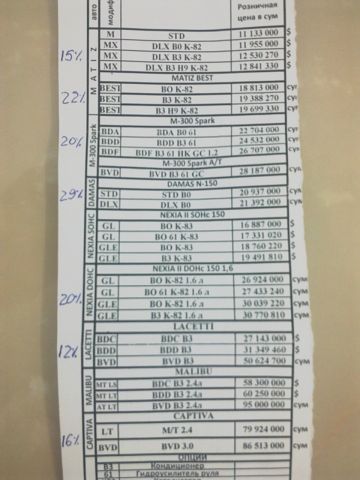 авто
модиф
Розничная
цена в сум
15% МАТИЗ
M STD 11 133 000 $
MX DLX B0 K-82 11 955 000 $
MX DLX B3 K-82 12 530 270 $
MX DLX B3 H9 K-82 12 841 330 $
MATIZ BEST
22%
BEST BO K-82 18 813 000 сум
BEST B3 K-82 19 388 270 сум
BEST B3 H9 K-82 19 699 330 сум
M-300 Spark
20% M-300 Spark
BDA BDA B0 61 22 704 000 сум
BDD BDD B3 61 24 532 000 сум
BDF BDF B3 61 HK GC 1.2 26 707 000 сум
M-300 Spark A/T
BVD BVD B3 61 GC 28 187 000 сум
DAMAS N-150
29% DAMAS
STD STD B0 20 937 000 сум
DLX DLX B0 21 392 000 сум
NEXIA II SOHc 150
NEXIA SOHC
GL BO K-83 16 887 000 $
GL BO 61 K-83 17 331 020 $
GLE BO K-83 18 760 220 $
GLE B3 K-83 19 491 810 $
NEXIA II DOHc 150 1,6
20% NEXIA DOHC
GL BO K-82 1.6 л 26 924 000 сум
GL BO 61 K-82 1.6 л 27 433 240 сум
GLE BO K-82 1.6 л 30 039 220 сум
GLE B3 K-82 1.6 л 30 770 810 сум
LACETTI
12% LACETTI
BDC BDC B3 27 143 000 $
BDD BDD B3 31 349 460 $
BVD BVD B3 50 624 700 сум
MALIBU
MALIBU
MT LS BDC B3 2.4л 58 300 000 сум
MT LT BDD B3 2.4л 60 250 000 сум
AT LT BVD B3 2.4л 95 000 000 сум
CAPTIVA
16% CAPTIVA
LT M/T 2.4 79 924 000 сум
BVD BVD 3.0 86 513 000 сум
ОПЦИИ
B3 Кондиционер
61 Гидроусилитель руля